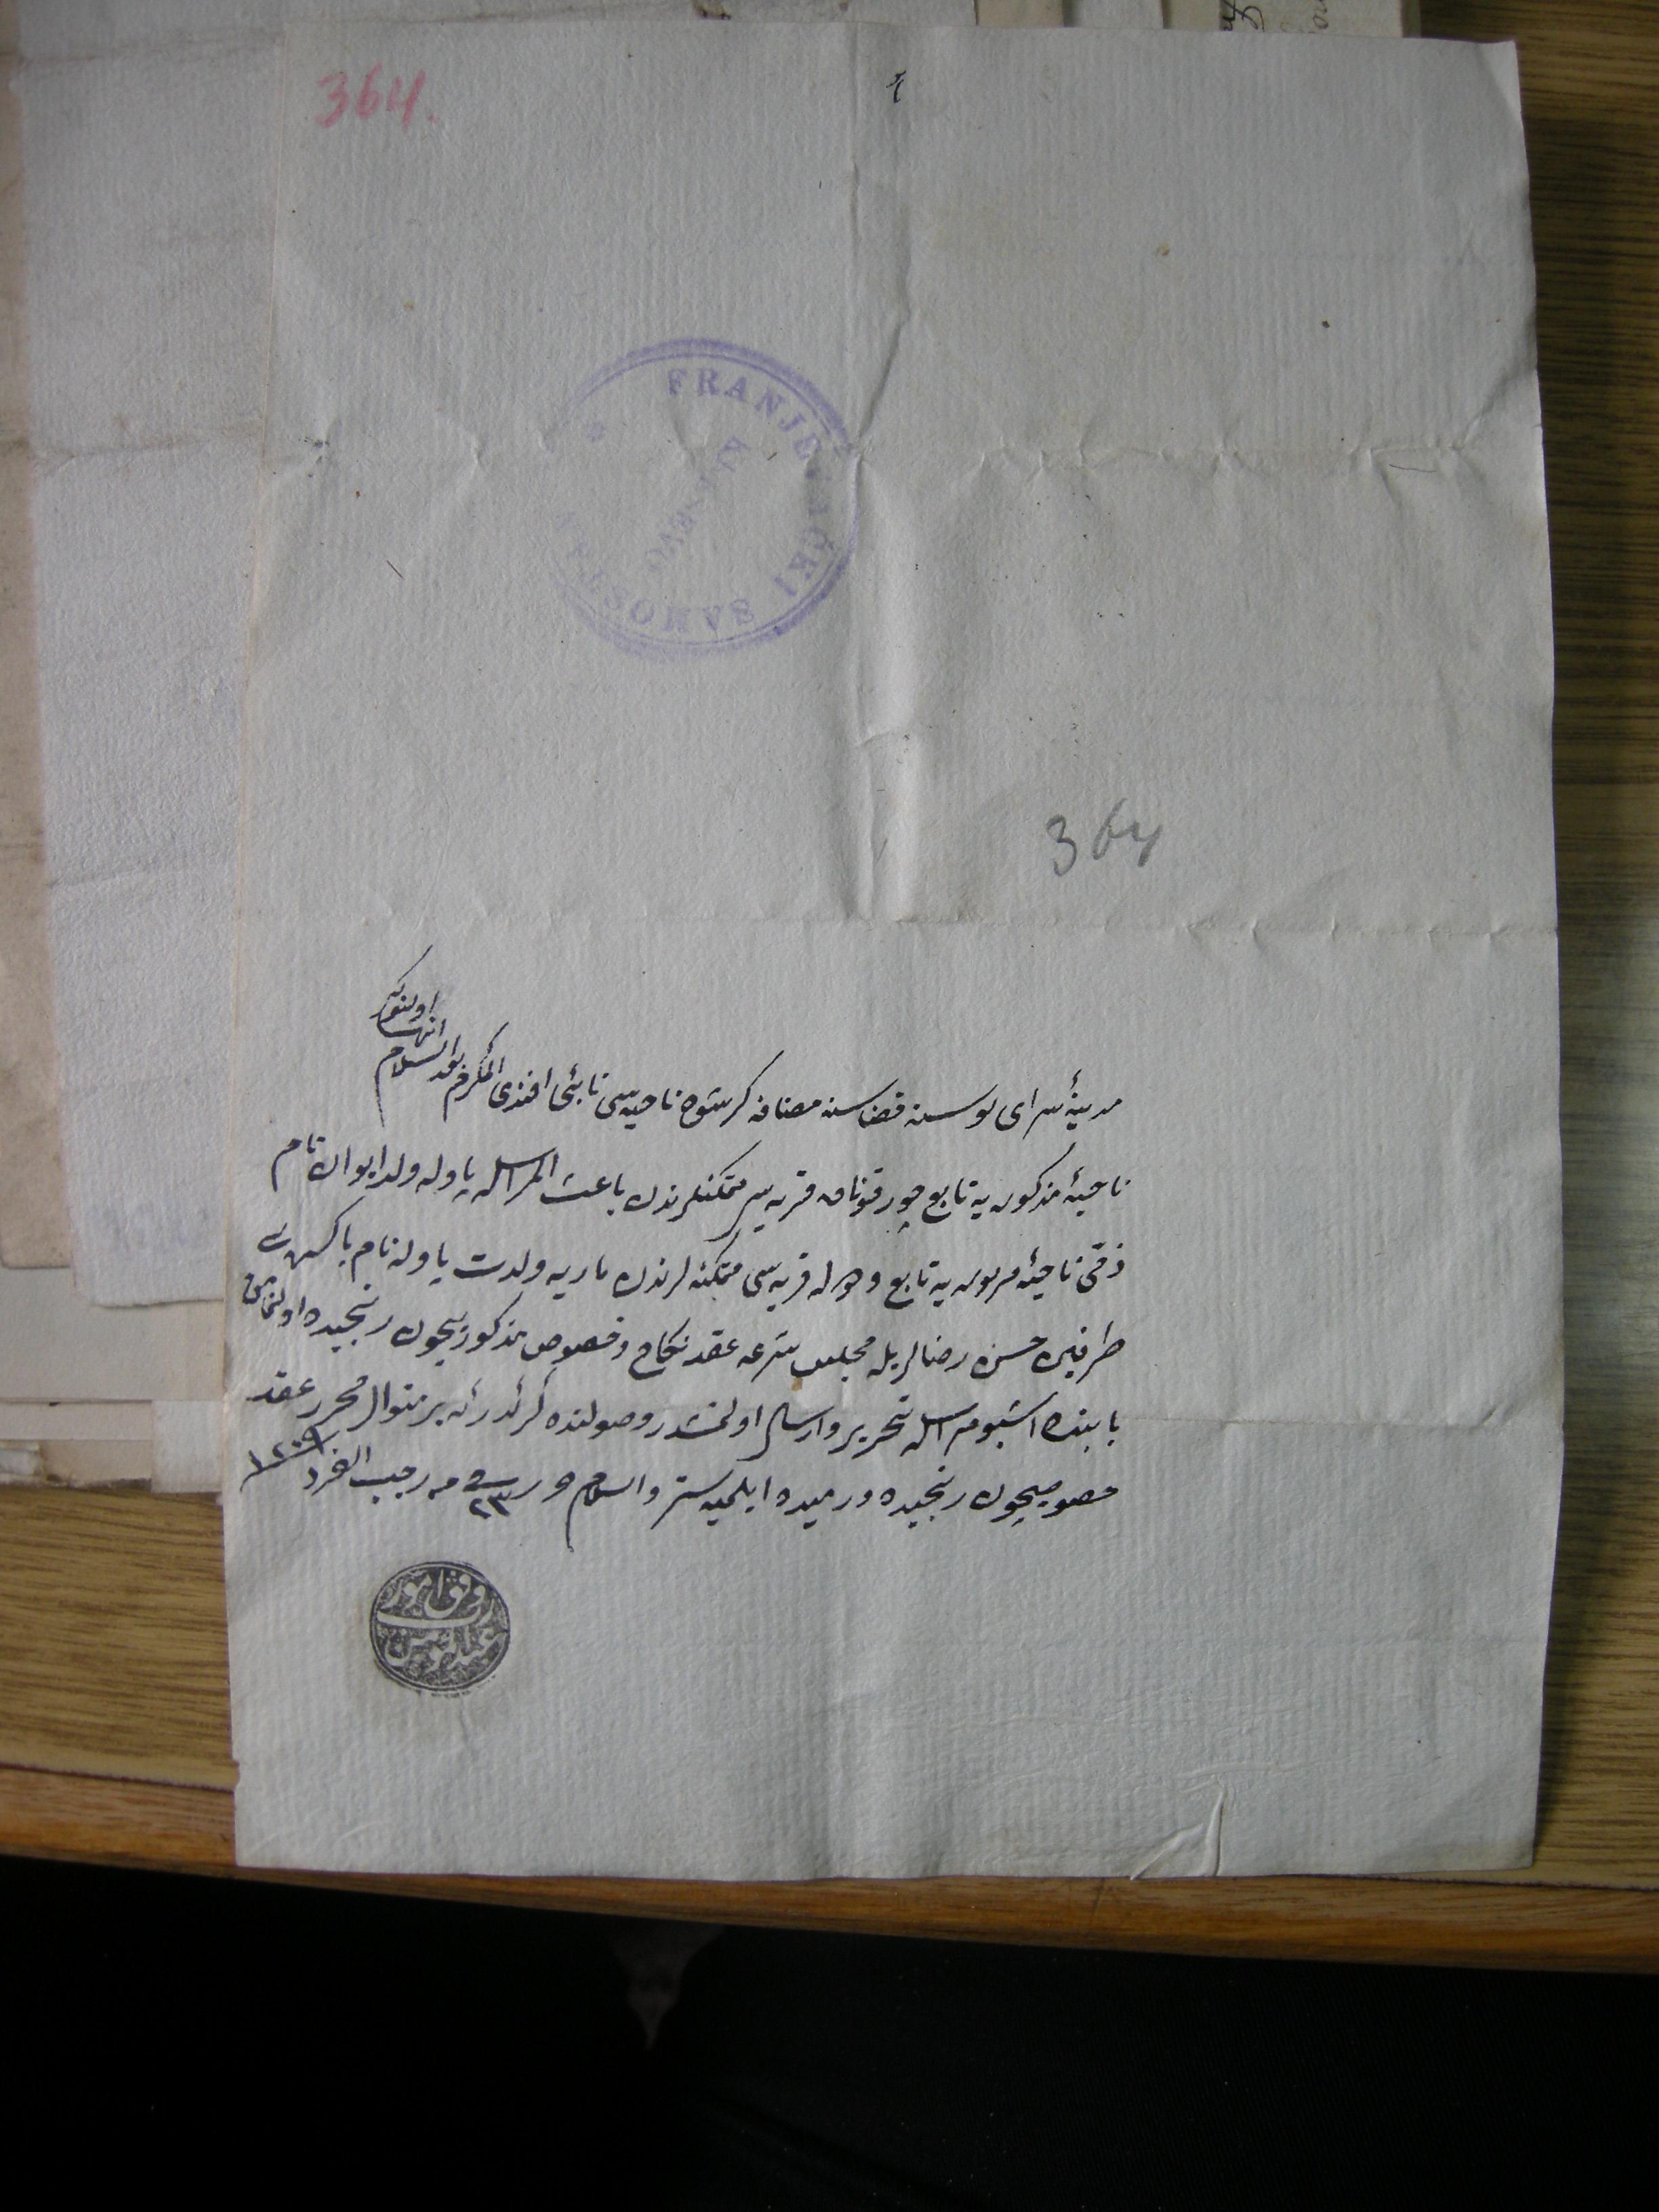 364.
1
FRANJEVAČKI SAMOSTAN
364
مدینهٔ سرای بوسنه قضاسنه مضافه کرشوه ناحیه‌سی نائبی افندی المکرم بعد السلام
انها اولنور که
ناحیهٔ مذکوره‌یه تابع قریه‌سی متمکنلرندن باعث المراسله یاوله ولد ایوان نام
ذمی ناحیهٔ مزبوره‌یه تابع قریه‌سی متمکنه‌لرندن ماریه ولدت یاوله نام باکره‌یی
طرفین حسن رضالریله مجلس شرعه عقد نکاح و خصوص مذکور ایچون رنجیده اولنمامق
بابنده اشبو مراسله تحریر و ارسال اولنمشدر وصولنده کرکدر که بر منوال محرر عقد
خصوصیچون رنجیده و رمیده ایلمیه‌سز والسلام فی ٢٣ من رجب الفرد ١٢٠٩